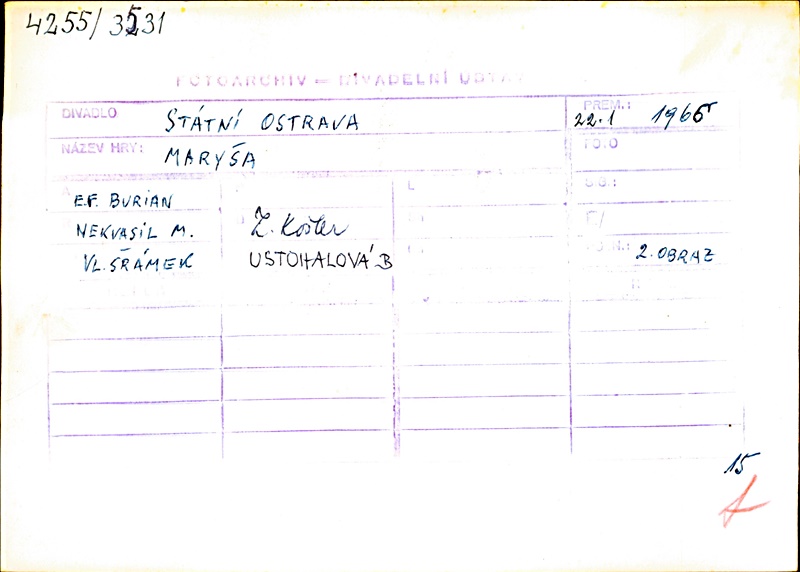 4255/3531
FOTOARCHIV – DIVADELNÍ ÚSTAV
DIVADLO STÁTNÍ OSTRAVA PREM.: 22.1 1965
NÁZEV HRY: MARYŠA
E.F. BURIAN
NEKVASIL M. Z. Košler
VL. ŠRÁMEK USTOHALOVÁ B 2. OBRAZ
15